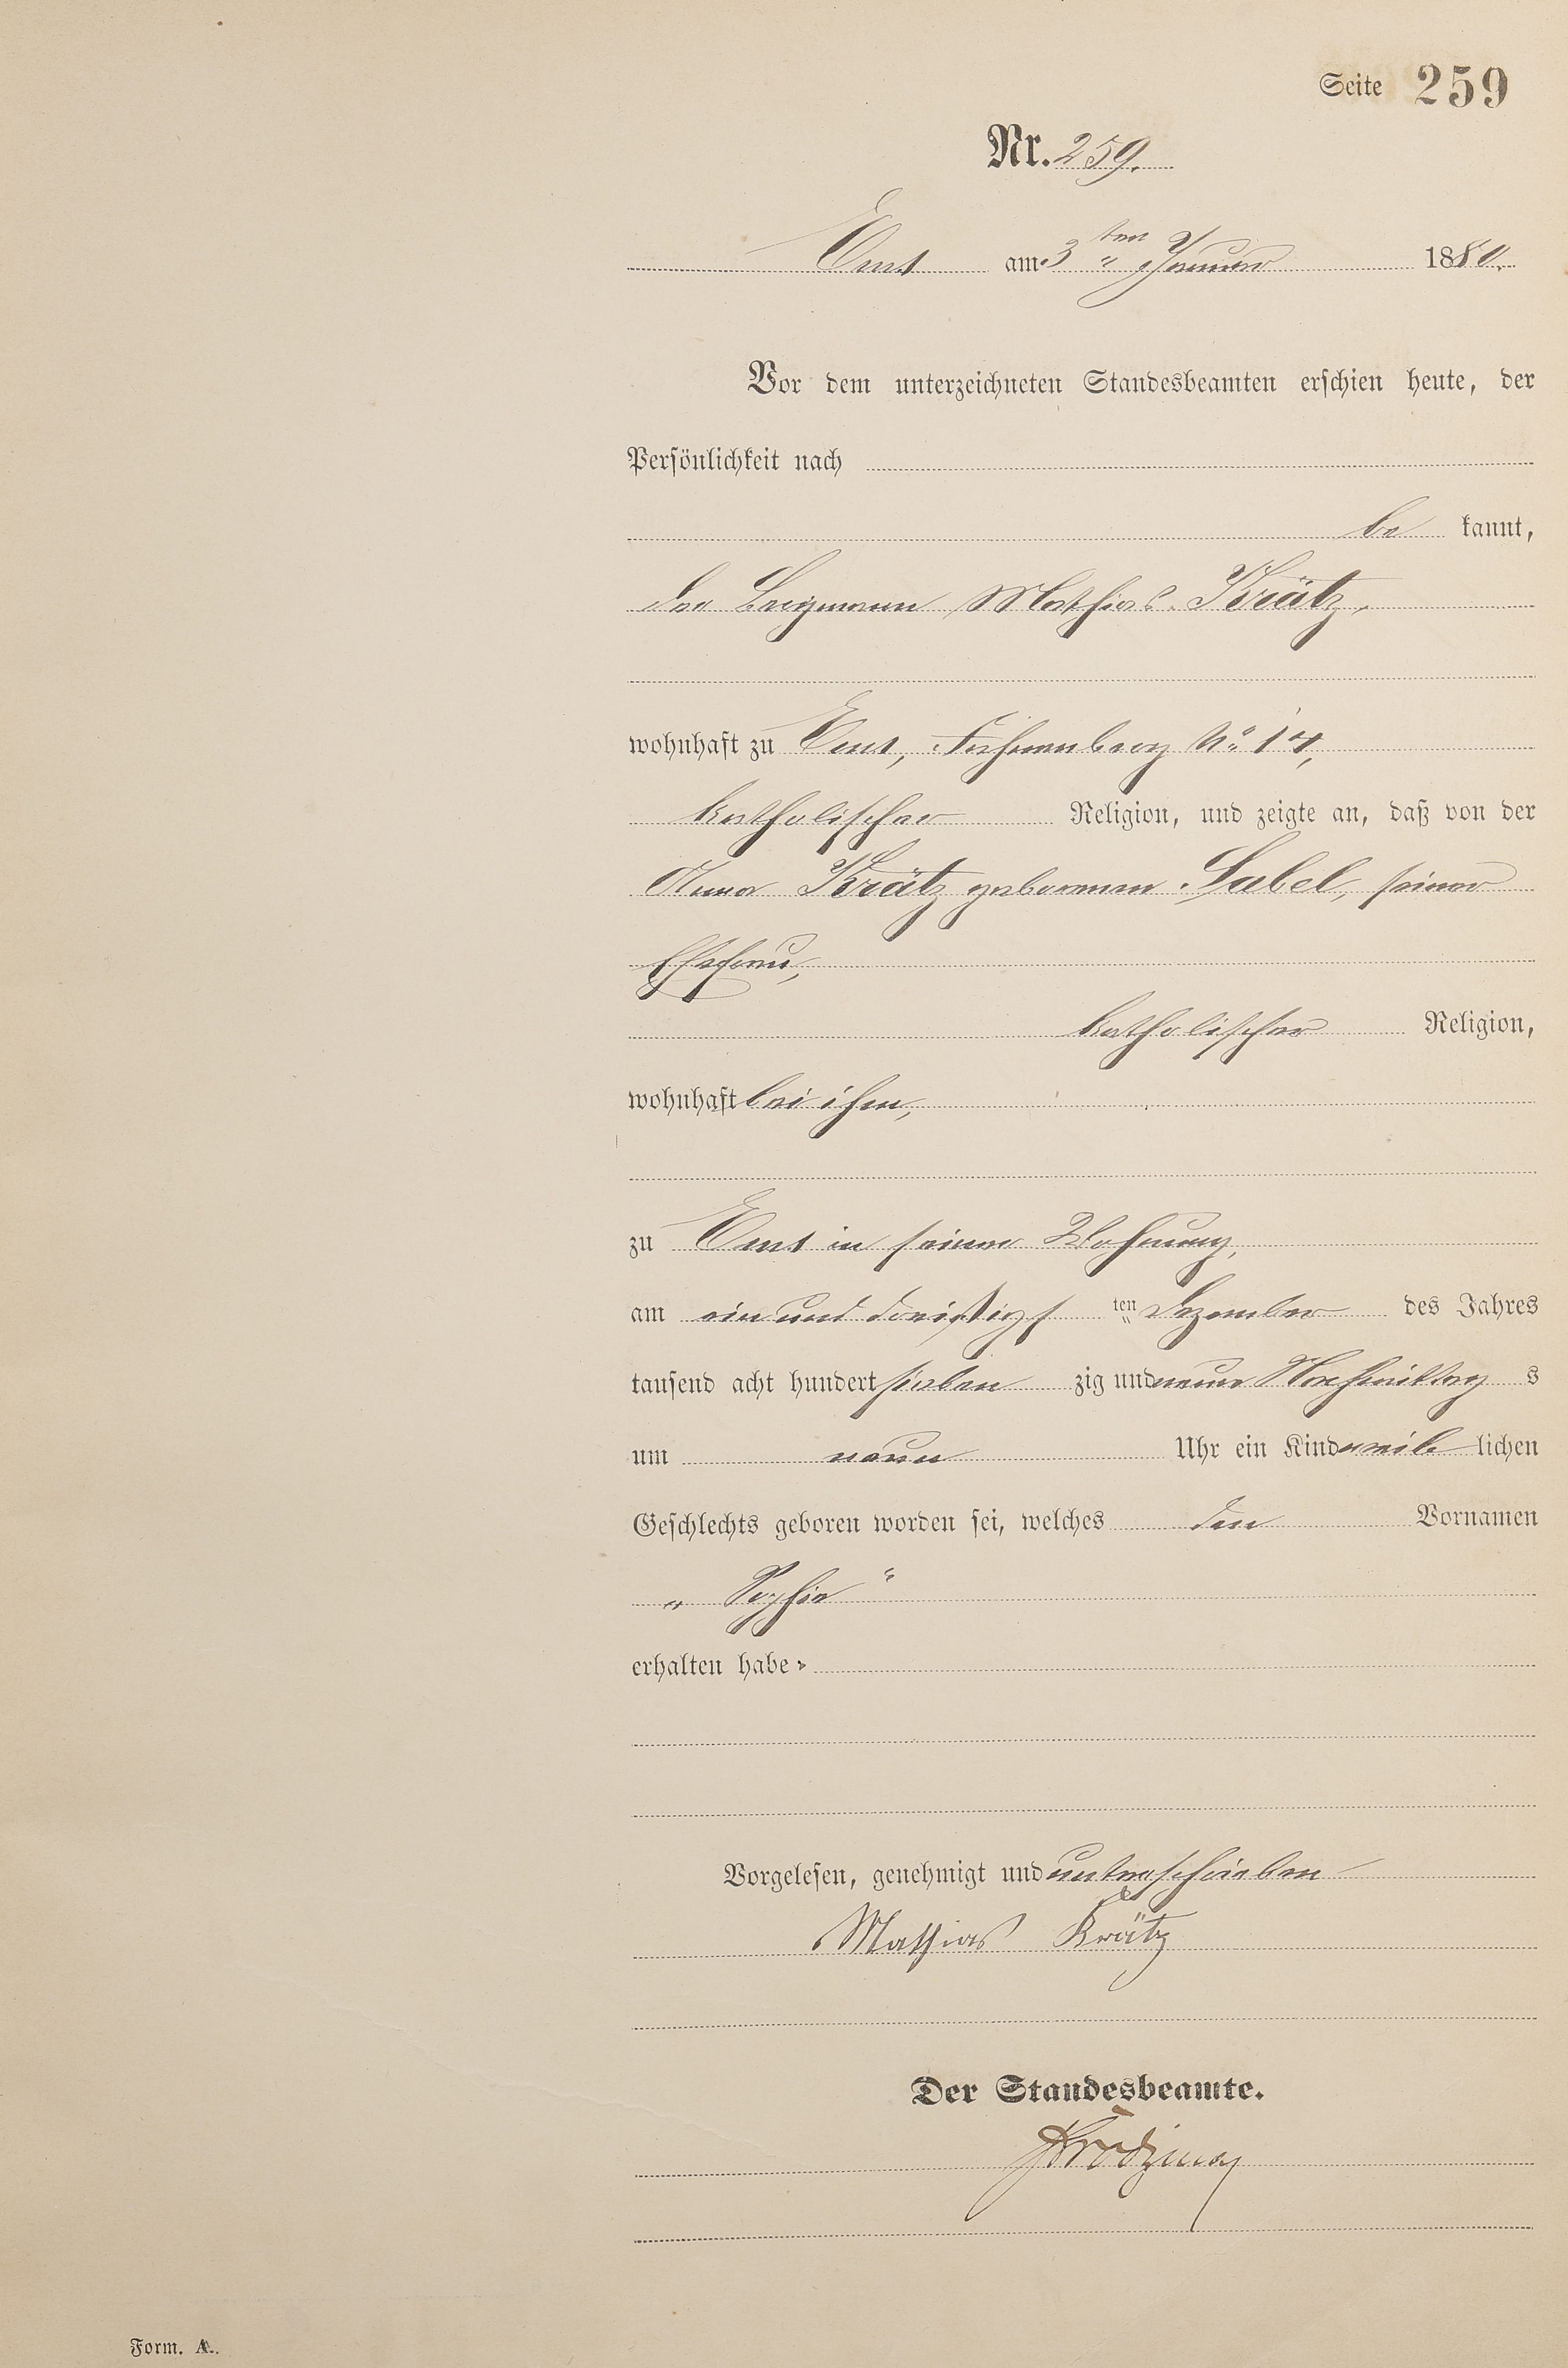 Seite 259
Nr. 259.
Ems am 3ten Januar 1880.
Vor dem unterzeichneten Standesbeamten erschien heute, der
Persönlichkeit nach
be kannt,
der Bergmann Mathias Krätz,
wohnhaft zu Ems, No 14,
katholischer Religion, und zeigte an, daß von der
Anna Krätz geborenen Sabel, seiner
Ehefrau,
katholischer Religion,
wohnhaft bei ihm,
zu Ems in seiner Wohnung,
am ein und dreißigs ten Dezember des Jahres
tausend acht hundert sieben zig und neun Nachmittag s
um neun Uhr ein Kind weib lichen
Geschlechts geboren worden sei, welches den Vornamen
„ Sophie “
erhalten habe.
Vorgelesen, genehmigt und unterschrieben
Mathias Krätz
Der Standesbeamte.
Form. A.